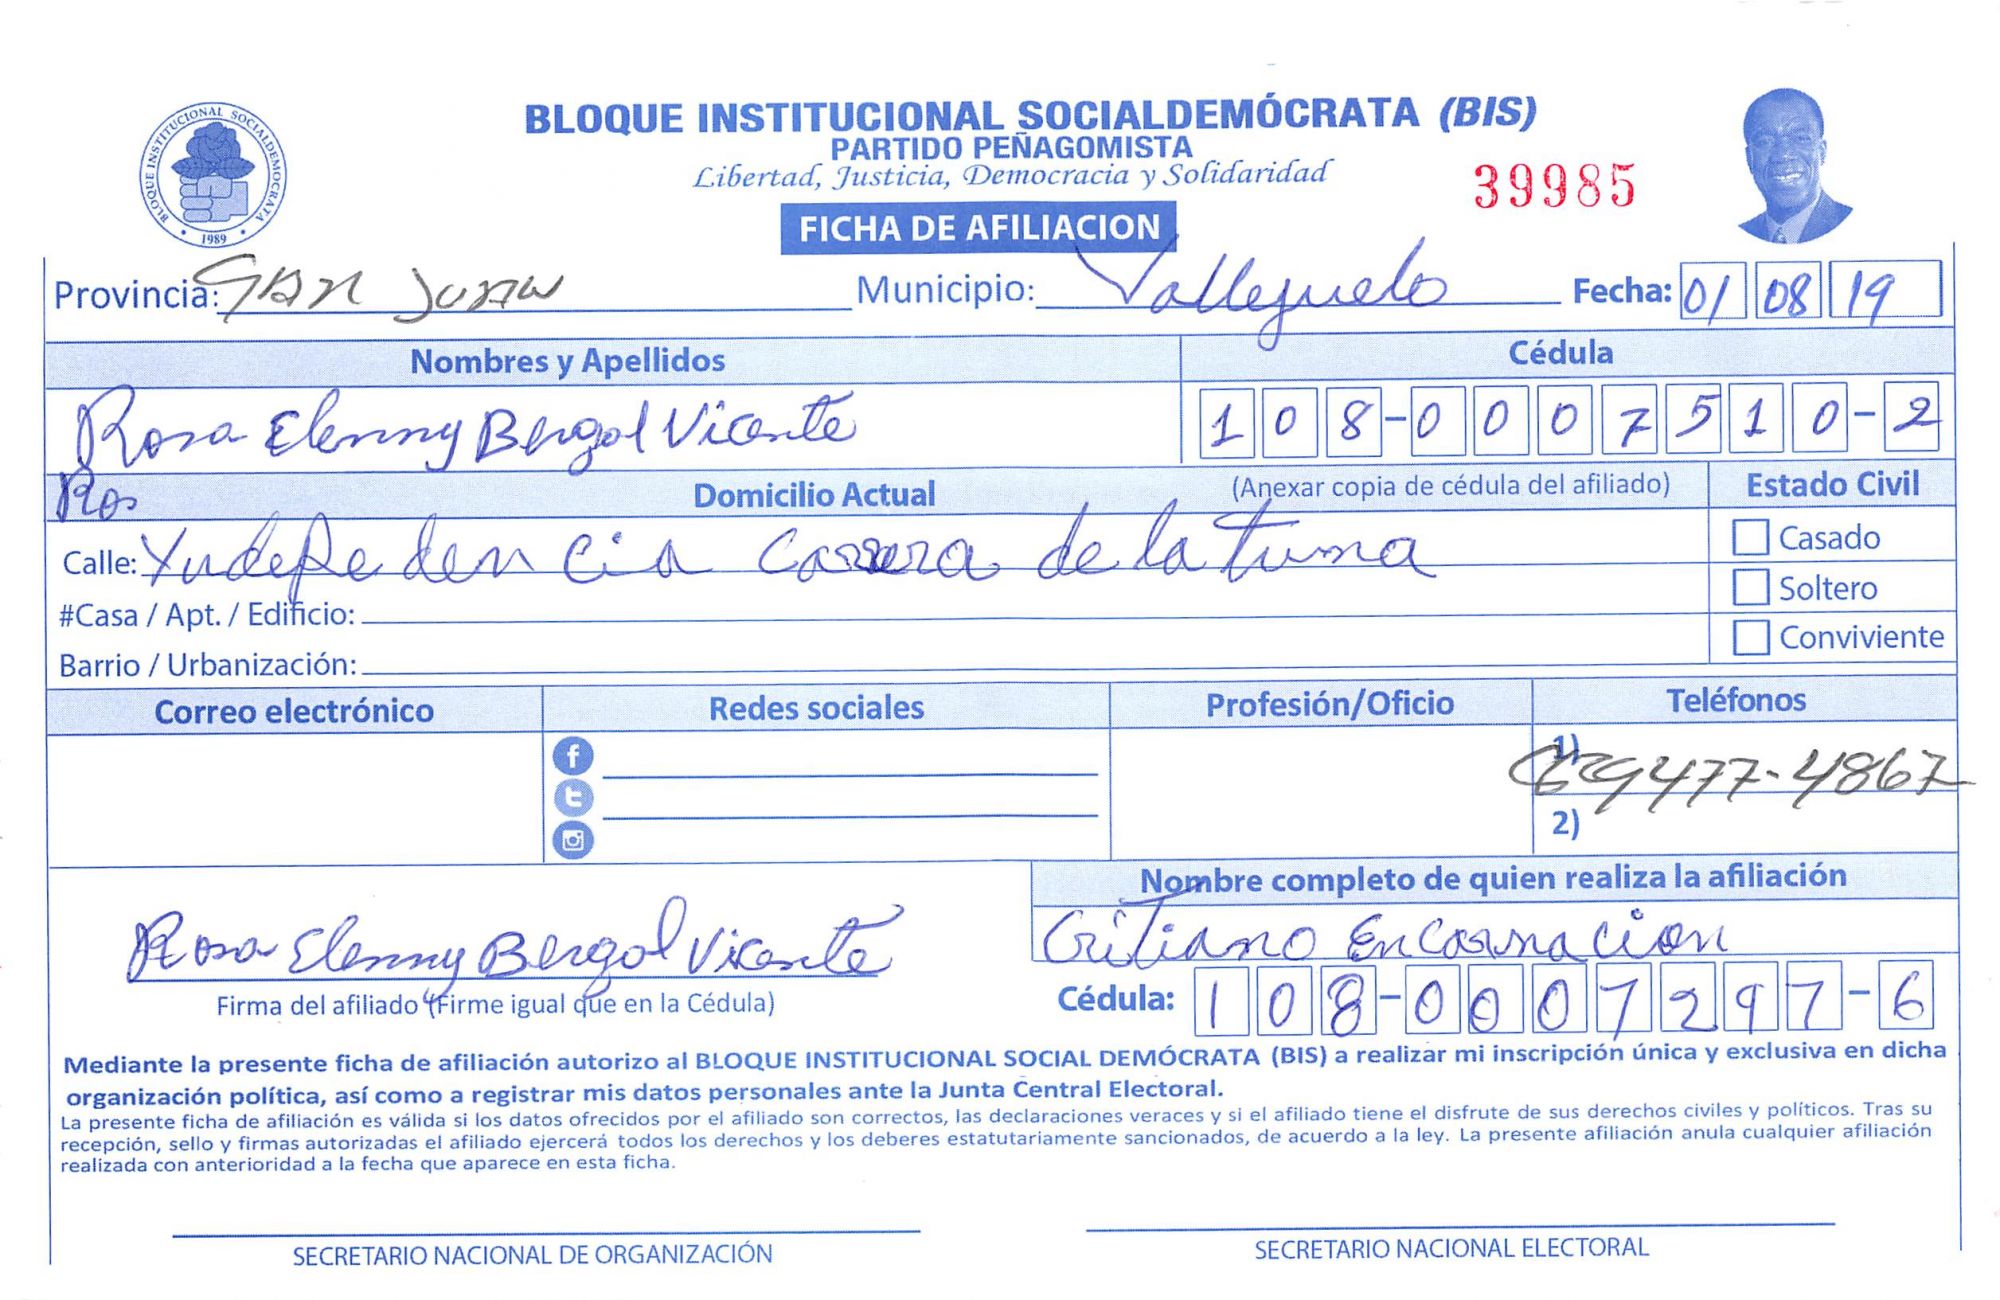 BLOQUE INSTITUCIONAL SOCIALDEMÓCRATA (BIS)
PARTIDO PEÑAGOMISTA
Libertad, Justicia, Democracia y Solidaridad
39985
BLOQUE INSTITUCIONAL SOCIALDEMOCRATA
1989
FICHA DE AFILIACION
Provincia: San Juan Municipio: Vallejuelo Fecha: 01 08 19
Nombres y Apellidos Cédula
Rosa Elenny Bergol Vicente 108-0007510-2
Ros Domicilio Actual (Anexar copia de cédula del afiliado) Estado Civil
Calle: Yndepedencia Carrera de la tuna Casado
#Casa / Apt. / Edificio: Soltero
Barrio / Urbanización: Conviviente
Correo electrónico Redes sociales Profesión/Oficio Teléfonos
1) 829477-4867
2)
Nombre completo de quien realiza la afiliación
Critiano Encarnacion
Rosa Elenny Bergol Vicente
Firma del afiliado (Firme igual que en la Cédula) Cédula: 108-0007297-6
Mediante la presente ficha de afiliación autorizo al BLOQUE INSTITUCIONAL SOCIAL DEMÓCRATA (BIS) a realizar mi inscripción única y exclusiva en dicha
organización política, así como a registrar mis datos personales ante la Junta Central Electoral.
La presente ficha de afiliación es válida si los datos ofrecidos por el afiliado son correctos, las declaraciones veraces y si el afiliado tiene el disfrute de sus derechos civiles y políticos. Tras su
recepción, sello y firmas autorizadas el afiliado ejercerá todos los derechos y los deberes estatutariamente sancionados, de acuerdo a la ley. La presente afiliación anula cualquier afiliación
realizada con anterioridad a la fecha que aparece en esta ficha.
SECRETARIO NACIONAL DE ORGANIZACIÓN SECRETARIO NACIONAL ELECTORAL